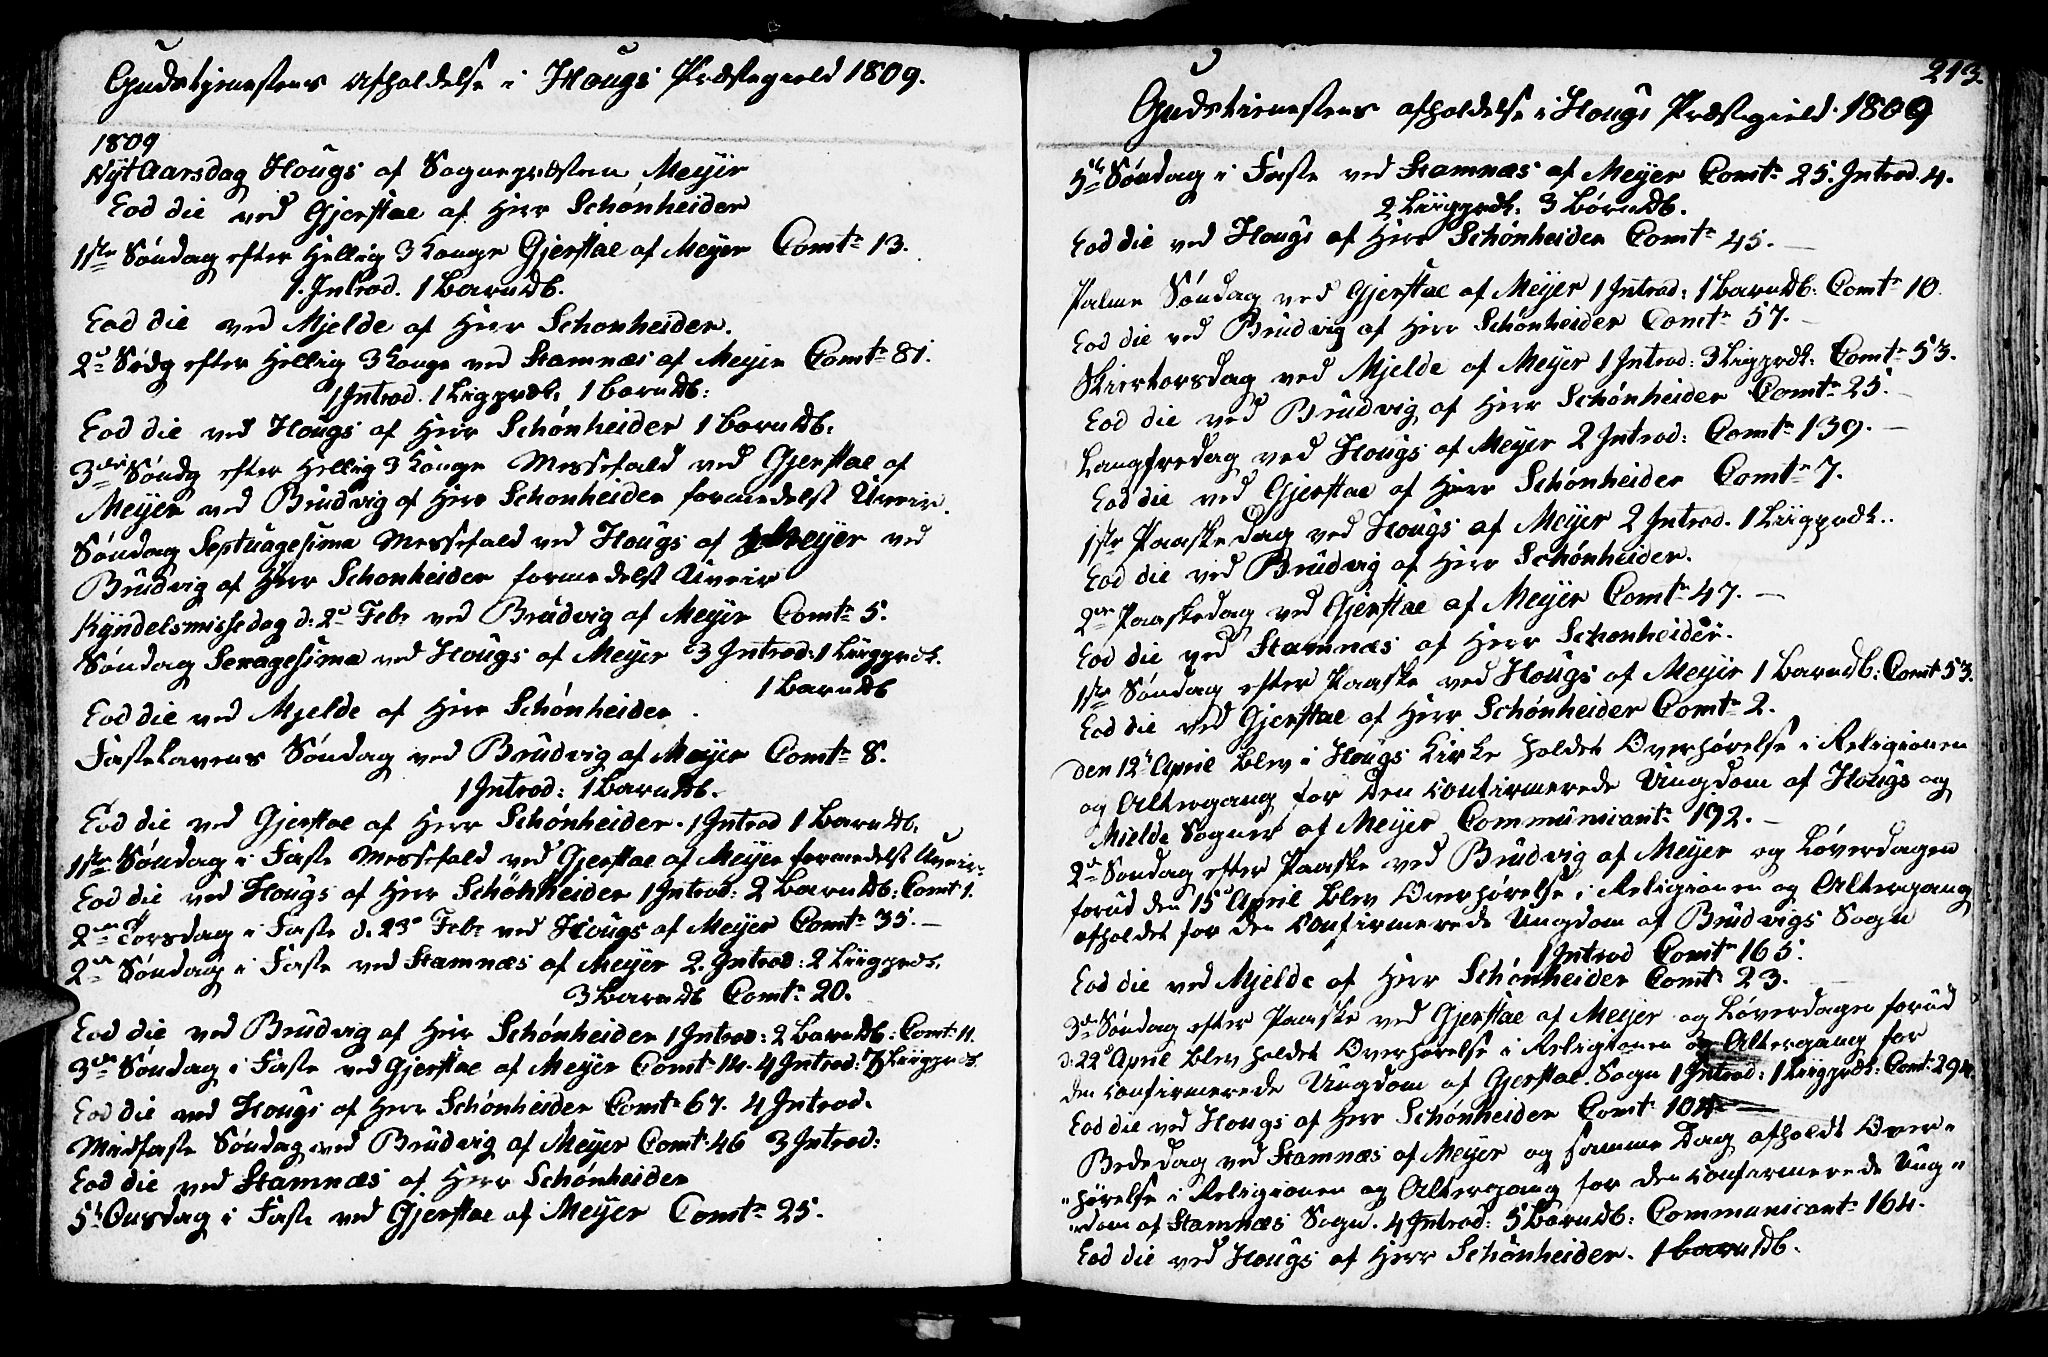 Gudstjenestens Afholdelse i Hougs Præstegield 1809.
1809
Nyt Aarsdag Hougs af Sognepræsten Meyer
Eod die ved Gjerstae af Herr Schønheider
1ste Søndag efter Hellig 3 Konge Gjerstae af Meyer Comt: 13.
1. Introd. 1 Barn Db.
Eod die ved Mjelde af Herr Schonheider.
2d Sødg efter Hellig 3 Konge ved Stamnæs af Meyer Comt: 81.
1 Introd. 1 Liigprdk. 1 barn Db:
Eod die ved Hougs af Herr Schønheider 1 barn Db.
3die Søndg efter Hellig 3 Konge Messefald ved Gjerstae af
Meyer ved Brudvig af Herr Schonheider formedelst Uveir.
Søndag Septuagesima Messefald ved Hougs af Meyer ved
Brudvig af Herr Schonheider formedelst Uveir
Kyndelsmissedag d: 2d Febr ved Brudvig af Meyer Comt: 5.
Søndag Sexagesima ved Hougs af Meyer 3 Introd: 1 Liigprdk.
1 Barn Db
Eod die ved Mjelde af Herr Schønheider.
Fastelavens Søndag ved Brudvig af Meyer Comt: 8.
1 Introd: 1 Barn Db.
Eod die ved Gjerstae af Herr Schønheider. 1 Introd 1 Barn Db.
1ste Søndag i Faste Messefald ved Gjerstae af Meyer formedelst Uveir.
Eod die ved Hougs af Herr Schönheider 1 Introd: 2 Barn Db: Comt 1.
2den Torsdag i Faste d. 23de Febr ved Hougs af Meyer Comt: 35.
2den Søndag i Faste ved Stamnæs af Meyer 2. Introd: 2 Liigprdk.
3 Barn Db Comt: 20.
Eod die ved Brudvig af Herr Schønheider 1 Introd: 2 Barn Db: Comt: 11.
3die Søndag i Faste ved Gjerstae af Meyer Comt 14. 4 Introd: Liigprdk
Eod die ved Hougs af Herr Schønheider Comt: 67. 4 Introd.
Midfaste Søndag ved Brudvig af Meyer Comt: 46 3 Introd:
Eod die ved Stamnæs af Herr Schønheider
5t Onsdag i Faste ved Gjerstae af Meyer Comt: 25.
213.
Gudstienestens afholdelse i Hougs Præstegield. 1809
5te Søndag i Faste ved Stamnæs af Meyer Comt: 25. Introd. 4.
2 Liigprdk: 3 børn Db.
Eod die ved Hougs af Herr Schønheider Comt: 45.
Palme Søndag ved Gjerstae af Meyer 1 Introd: 1 barn Db: Comt: 10.
Eod die ved Brudvig af Herr Schønheider Comt: 57.
Skiertorsdag ved Mjelde af Meyer 1 Introd: 3 Ligprdk: Comt: 53.
Eod die ved Brudvig af Herr Schønheider Comt: 25.
Langfredag ved Hougs af Meyer 2 Introd: Comt: 139.
Eod die ved Gjerstae af Herr Schønheider Comt: 7.
1ste Paaskedag ved Hougs af Meyer 2 Introd. 1 Liigprdk..
Eod die ved Brudvig af Herr Schønheider.
2den Paaskedag ved Gjerstae af Meyer Comt: 47.
Eod die ved Stamnæs af Herr Schonheider.
1ste Søndag efter Paaske ved Hougs af Meyer 1 Barn Db: Comt 53.
Eod die ved Gjerstae af Herr Schønheider Comt: 2.
Den 12t April blev i Hougs Kirke holdet Overhørelse i Religionen
og Altergang for den confirmerede Ungdom af Hougs og
Mielde Sogner af Meyer Communicant: 192.
2d Sondag efter Paaske ved Brudvig af Meyer og Løverdagen
forud den 15d April blev Overhørelse i Religionen og Altergang
afholdet for den Confirmerede Ungdom af Brudvigs Sogn
1 Introd Comt: 165.
Eod die ved Mjelde af Herr Schønheider Comt: 23.
3die Søndag efter Paaske ved Gjerstae af Meyer og Løverdagen forud
d: 22d April blev holdet Overhørelse i Religionen og Altergang for
den confirmerede Ungdom af Gjerstae Sogn 1 Introd: 1 Liigprdk: Comt: 294.
Eod die ved Hougs af Herr Schønheider Comt: 104
Bededag ved Stamnæs af Meyer og samme Dag afholdt Over-
"hørelse i Religionen og Altergang for den confirmerede Ung"
"dom af Stamnæs Sogn. 4 Introd: 5 Børn Db: Communicant: 164.
Eod die ved Hougs af Herr Schønheider. 1 barn Db.